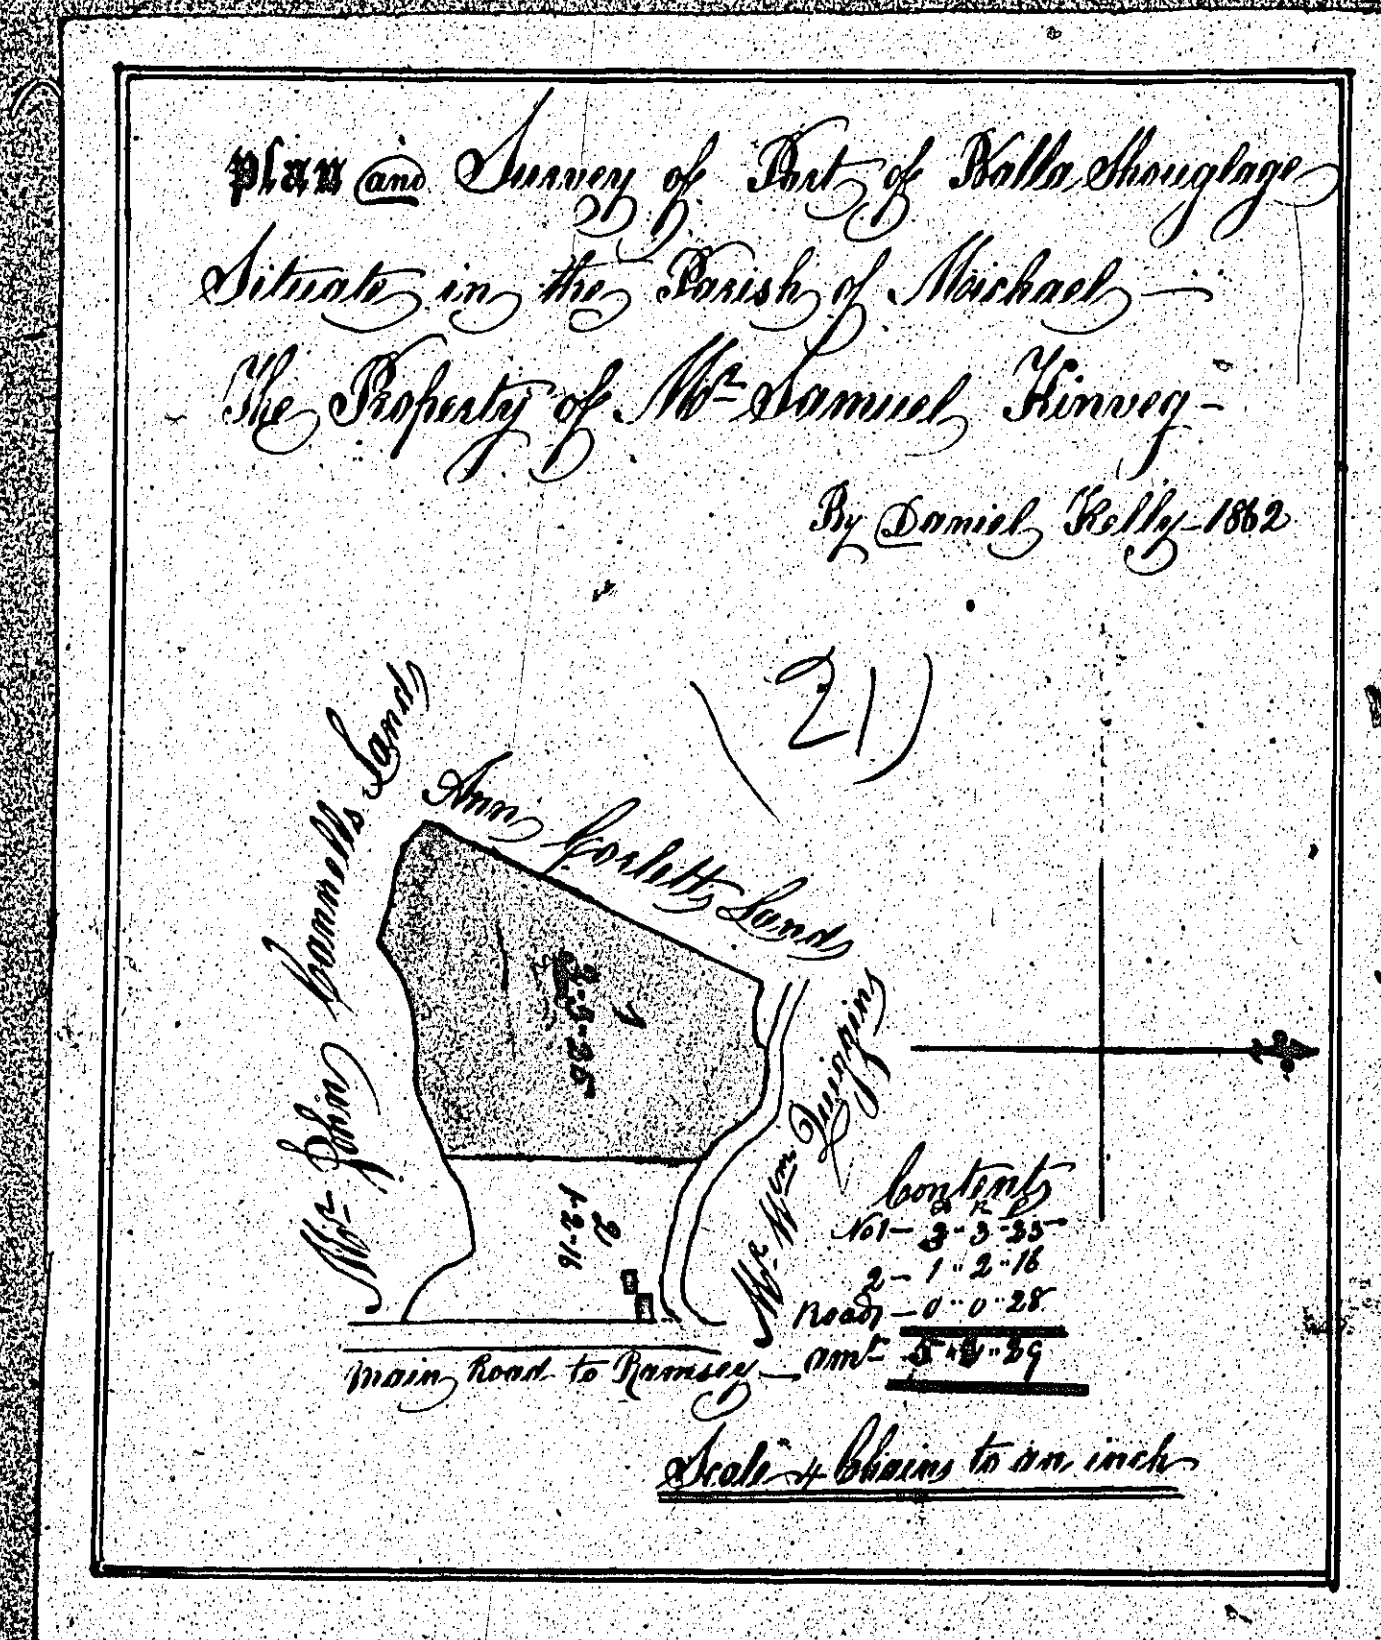 Plan and Survey of Part of Balla Shouglage
Situate in the Parish of Michael —
The Property of Mr Samuel Kinveg -
By Daniel Kelly - 1862
21
Mr John Cannells Land
Ann Corlett Land
1
3-3-35
2
1-2-16
Mr Wm Quiggins
Main Road to Ramsey
Content
A R P
No 1 — 3 " 3 " 35
2 — 1 " 2 " 16
Road — 0 " 0 " 28
amt 5 " " 39
Scale 4 Chains to an inch